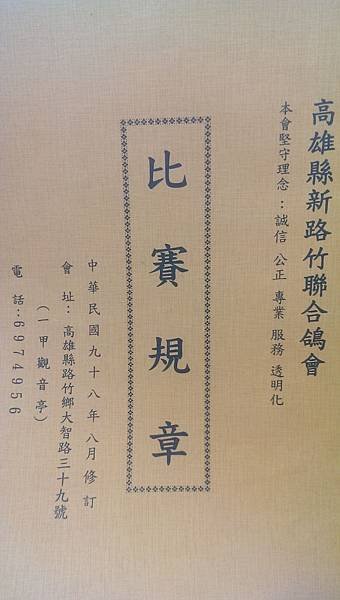 高雄縣新路竹聯合鴿會
本會堅守理念：誠信 公正 專業 服務 透明化
比賽規章
中華民國九十八年八月修訂
會 址：高雄縣路竹鄉大智路三十九號
（一甲觀音亭）
電 話：6974956